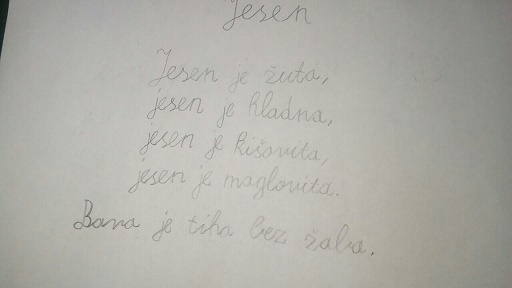 Jesen
Jesen je žuta,
jesen je hladna,
jesen je kišovita,
jesen je maglovita.
Bara je tiha bez žaba.